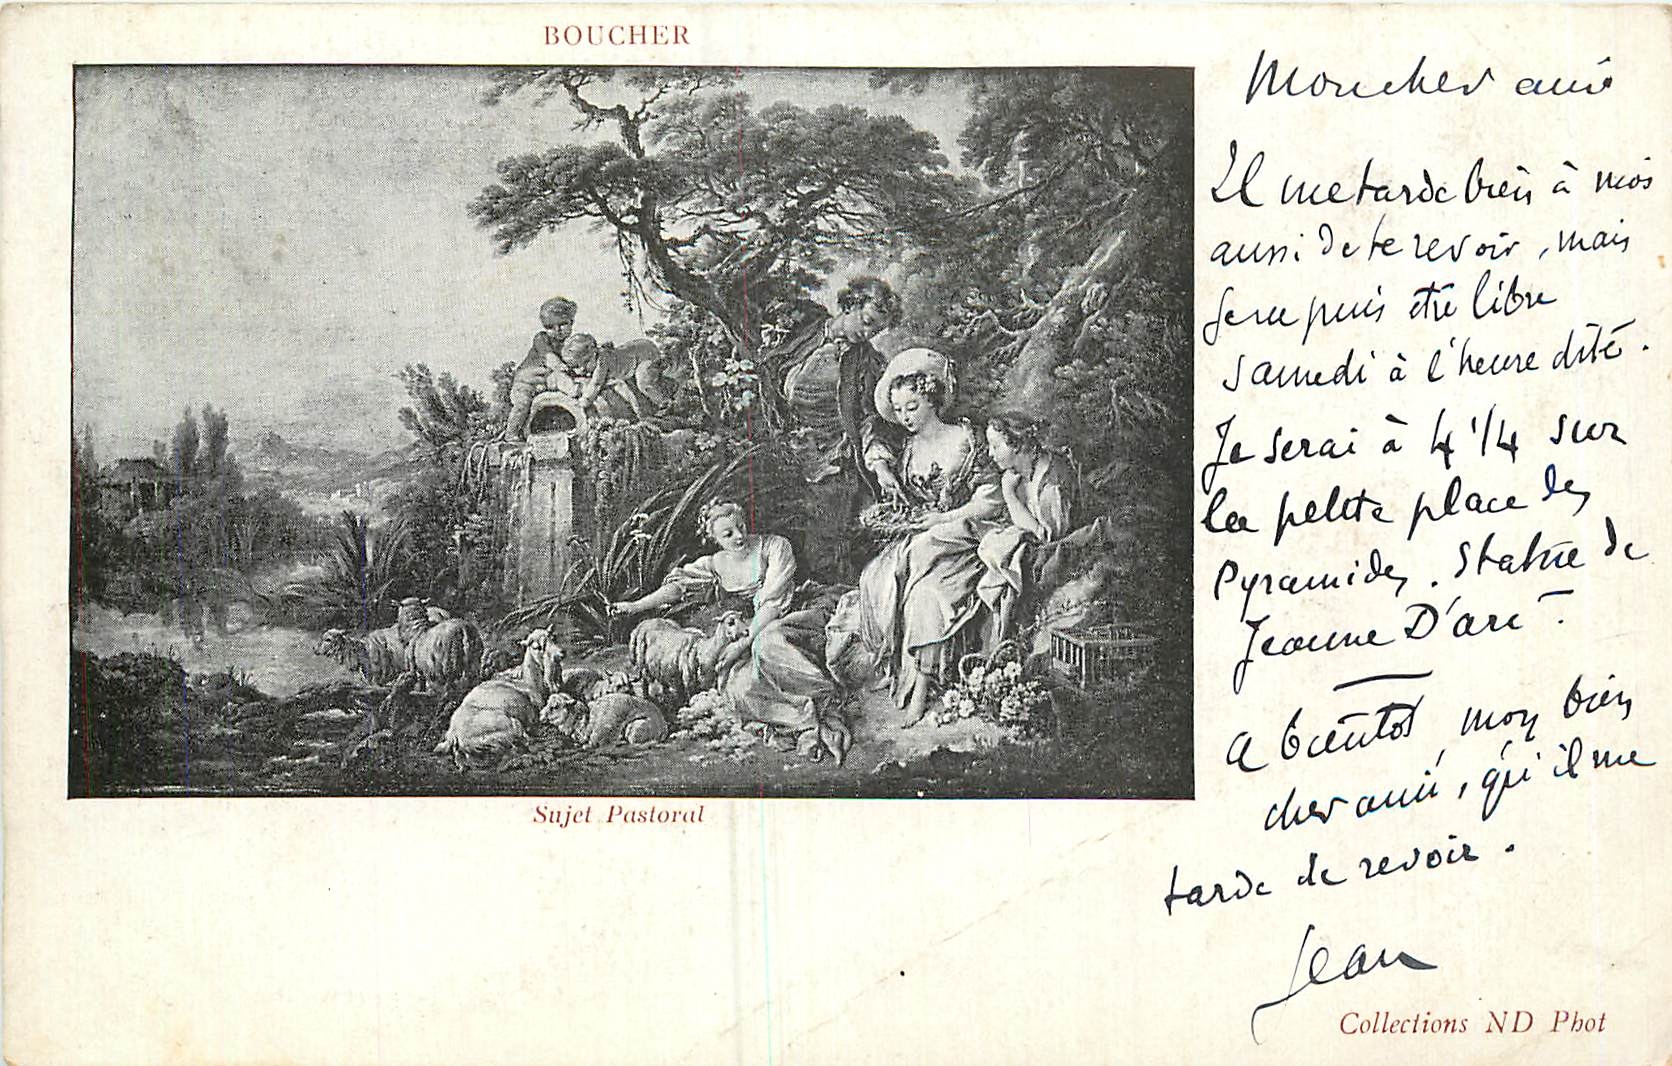 BOUCHER
Mon cher ami
Il me tarde bien à moi
aussi de te revoir, mais
je ne puis être libre
samedi à l'heure dite.
Je serai à 4 1/4 sur
la petite place des
Pyramides. Statue de
Jeanne D'arc.
A bientôt mon bien
cher ami, qu'il me
tarde de revoir.
Jean
Sujet Pastoral
Collections ND Phot